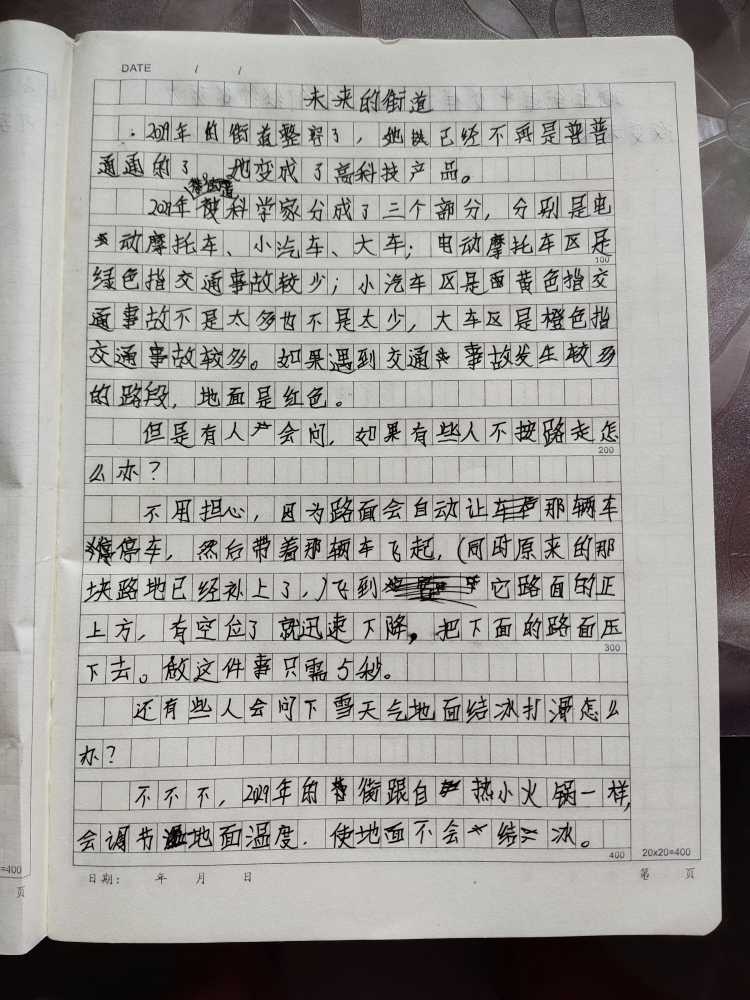 DATE / /
未来的街道
2029年的街道整容了，她已经不再是普普
通通的了，她变成了高科技产品。
2029年街道被科学家分成了三个部分，分别是电
动摩托车、小汽车、大车；电动摩托车区是
100
绿色指交通事故较少；小汽车区是黄色指交
通事故不是太多也不是太少，大车区是橙色指
交通事故较多。如果遇到交通事故发生较多
的路段，地面是红色。
但是有人会问，如果有些人不按路走怎
200
么办？
不用担心，因为路面会自动让那辆车
停车，然后带着那辆车飞起，(同时原来的那
块路地已经补上了，)飞到它路面的正
上方，有空位了就迅速下降，把下面的路面压
300
下去。做这件事只需5秒。
还有些人会问下雪天气地面结冰打滑怎么
办？
不不不，2029年的街跟自热小火锅一样，
会调节地面温度．使地面不会结冰。
400 20x20=400
日期： 年 月 日 第 页
=400
页